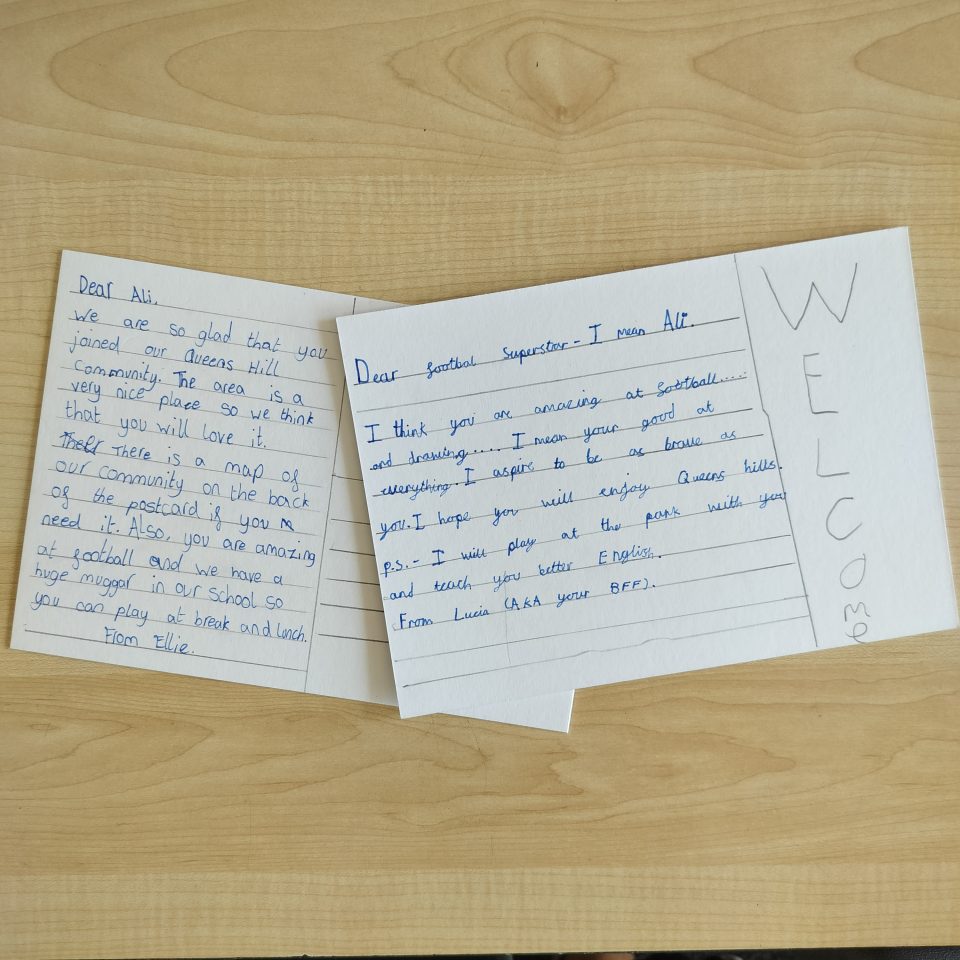 Dear Ali,
We are so glad that you
joined our Queens Hill
community. The area is a
very nice place so we think
that you will love it.
There is a map of
our community on the back
of the postcard if you
need it. Also, you are amazing
at football and we have a
huge muggar in our school so
you can play at break and lunch.
From Ellie.
Dear footbal Superstar - I mean Ali.
I think you are amazing at football.....
and drawing..... I mean your good at
everything. I aspire to be as brave as
you. I hope you will enjoy Queens hills.
p.s. - I will play at the park with you
and teach you better English.
From Lucia (AKA your BFF).
WELCOME